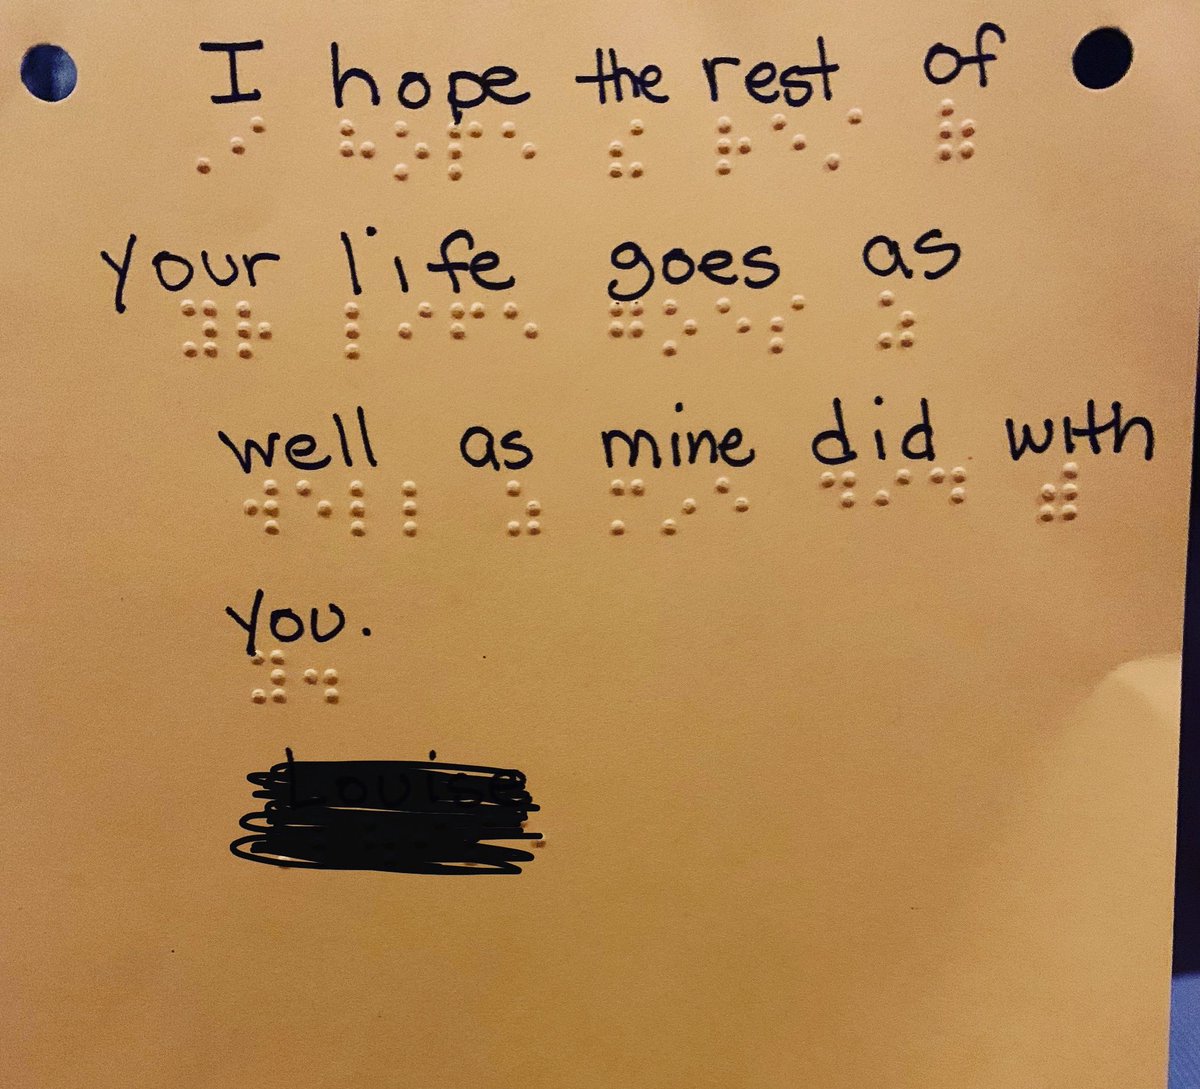 I hope the rest of
your life goes as
well as mine did with
you.